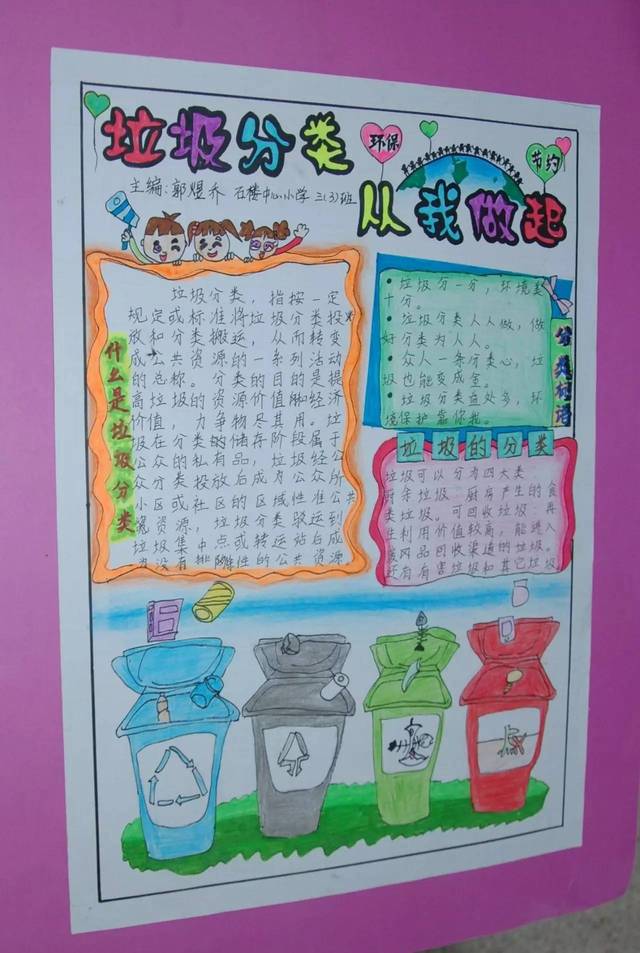 垃圾分类
环保
节约
从我做起
主编:郭煜乔 石楼中心小学 三(3)班
什么是垃圾分类
垃圾分类，指按一定
规定或标准将垃圾分类投
放和分类搬运，从而转变
成公共资源的一系列活动
的总称。分类的目的是提
高垃圾的资源价值和经济
价值，力争物尽其用。垃
圾在分类的储存阶段属于
公众的私有品，垃圾经公
众分类投放后成为公众所
小区或社区的区域性准公共
资源，垃圾分类驳运到
垃圾集中点或转运站后成
没有排除性的公共资源
分类标语
·垃圾分一分，环境美
十分。
·垃圾分类人人做，做
好分类为人人。
·众人一条分类心，垃
圾也能变成金。
·垃圾分类益处多，环
境保护靠你我。
垃圾的分类
垃圾可以分为四大类
厨余垃圾 厨房产生的食
类垃圾。可回收垃圾 再
生利用价值较高，能进入
废风品回收渠道的垃圾。
还有有害垃圾和其它垃圾